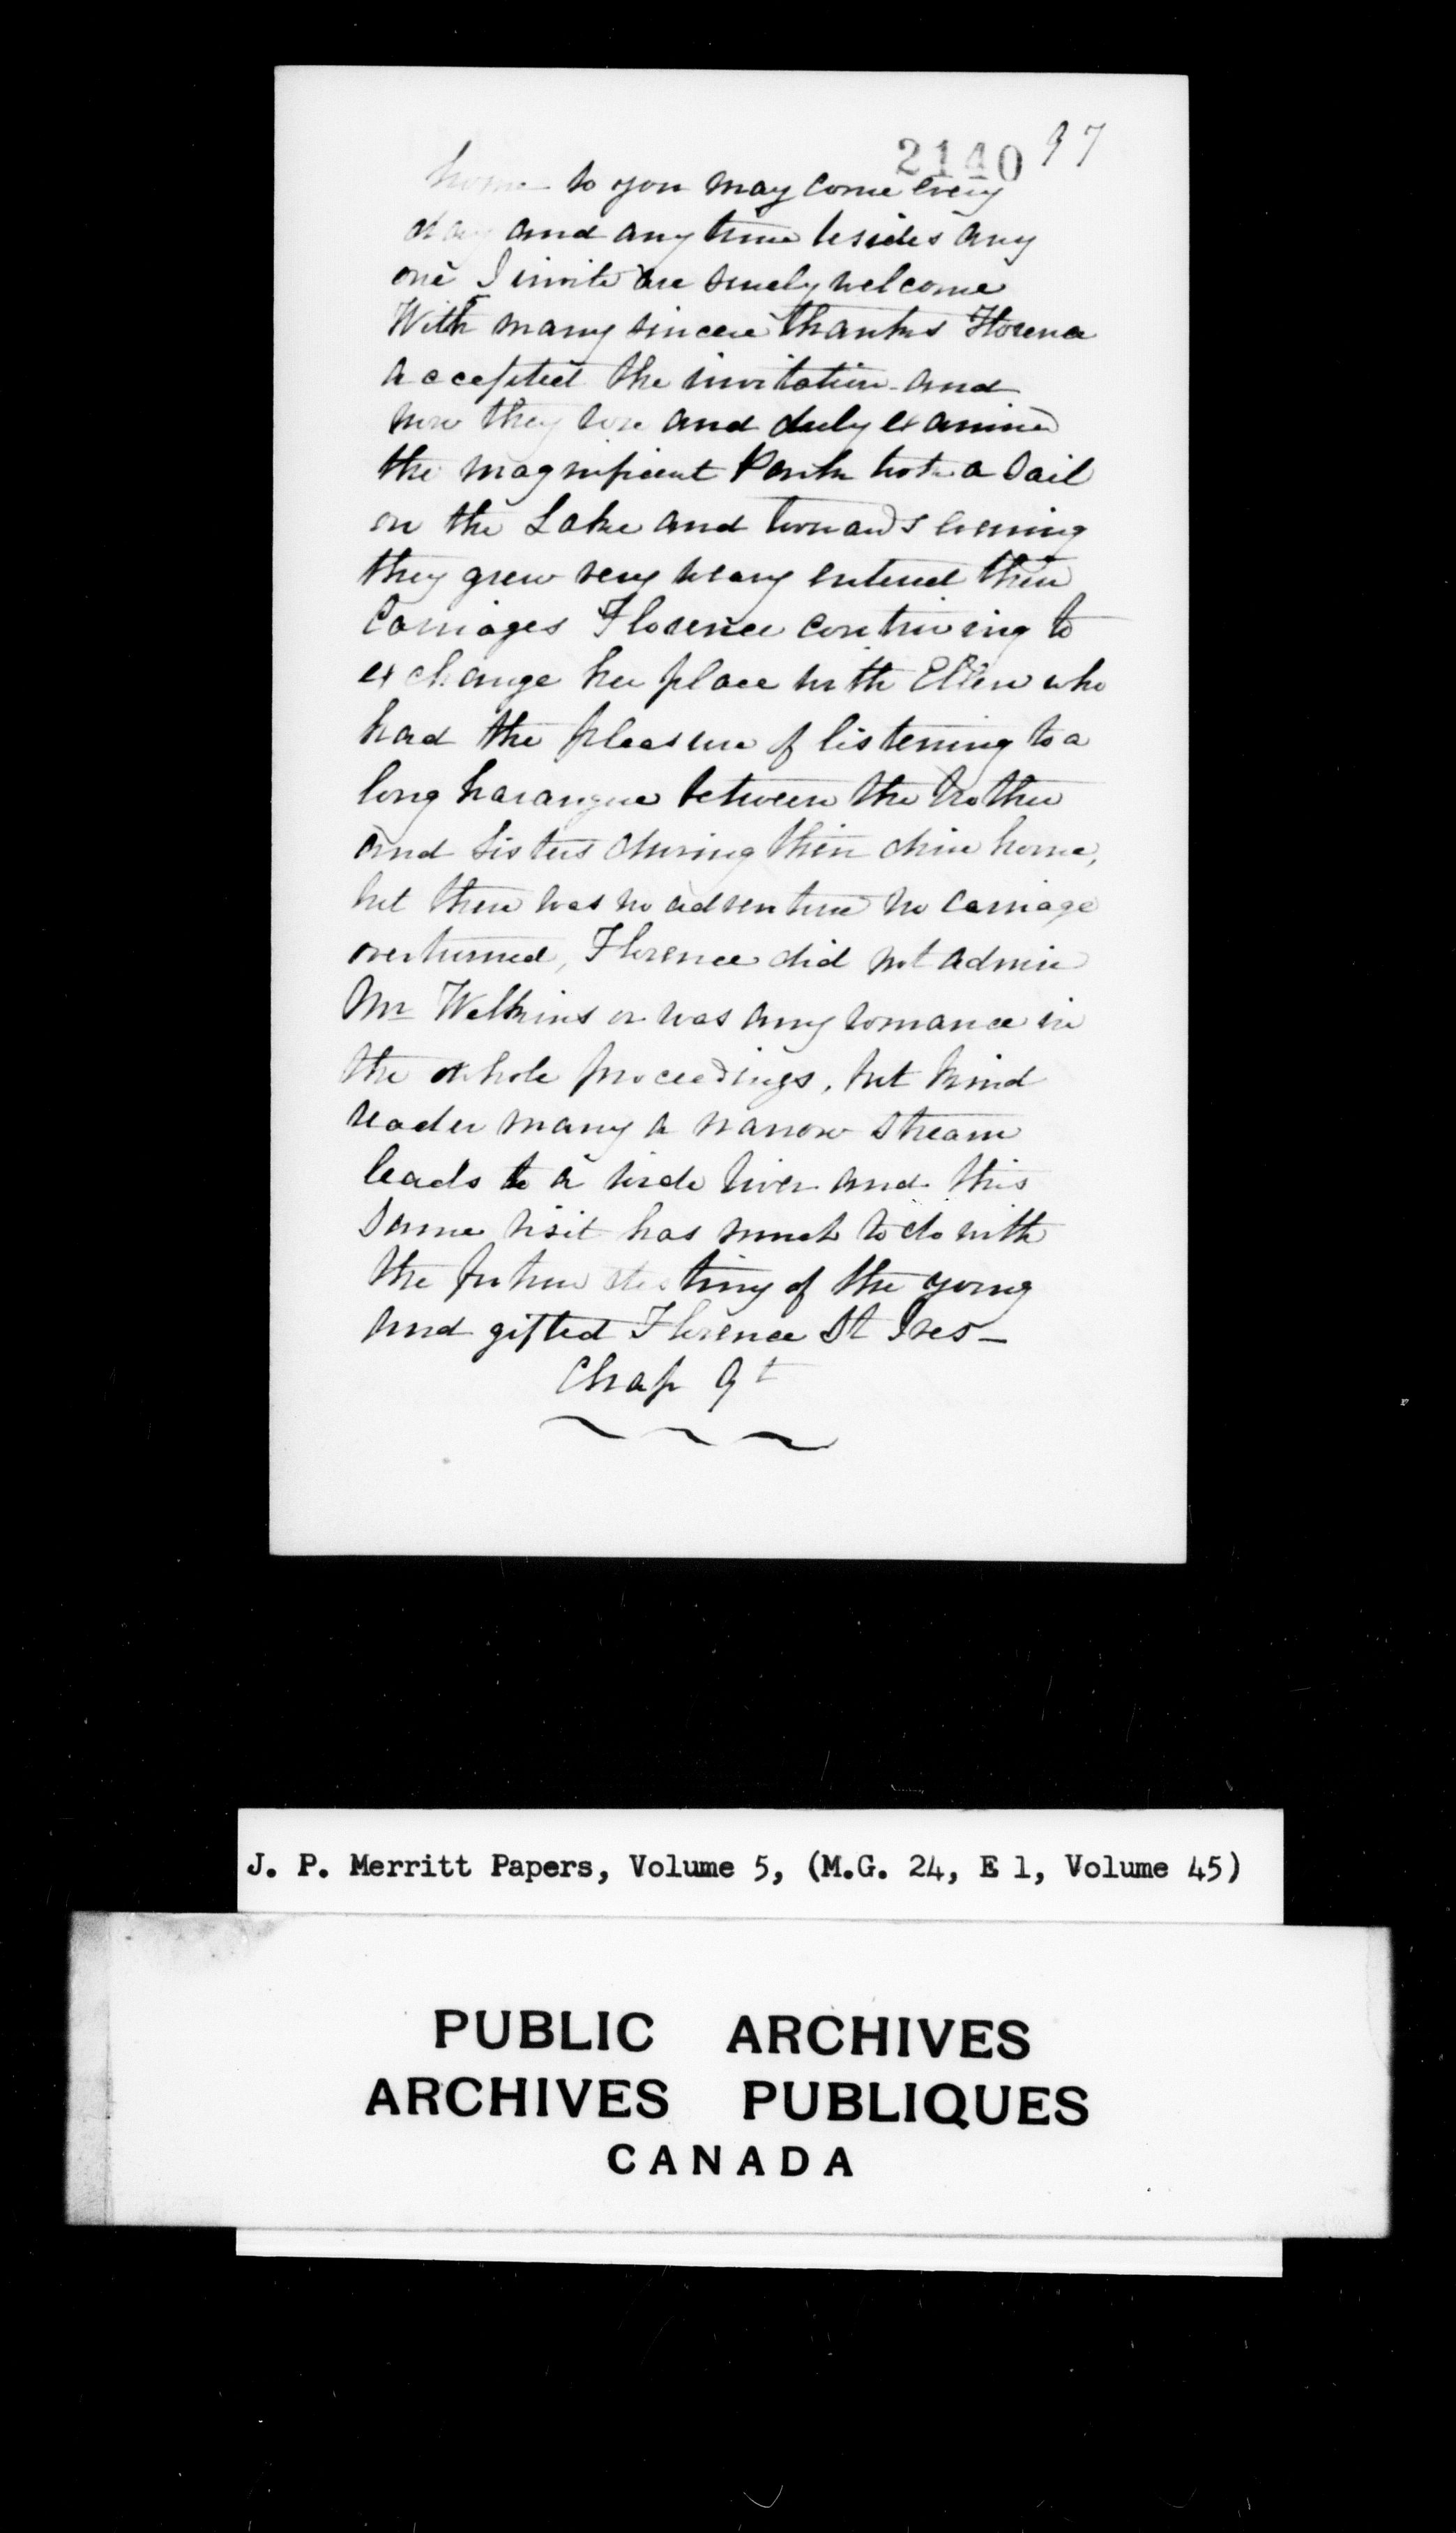 2140 97
home so you may come every
day and any time besides any
one I invite are surely welcome
With many sincere thanks Florence
accepted the invitation and
now they rose and duly examined
the magnificent Park took a sail
on the Lake and towards evening
they grew very weary entered their
Carriages Florence contriving to
exchange her place with Ellen who
had the pleasure of listening to a
long harangue between the brother
and Sisters during their drive home,
but there was no adventure no carriage
overturned, Florence did not admire
Mr Welkins or was any romance in
the whole proceedings, but kind
reader many a narrow stream
leads to a wide river and this
same visit has much to do with
the future destiny of the young
and gifted Florence St Ives —
Chap 9t
J. P. Merritt Papers, Volume 5, (M.G. 24, E 1, Volume 45)
PUBLIC ARCHIVES
ARCHIVES PUBLIQUES
CANADA